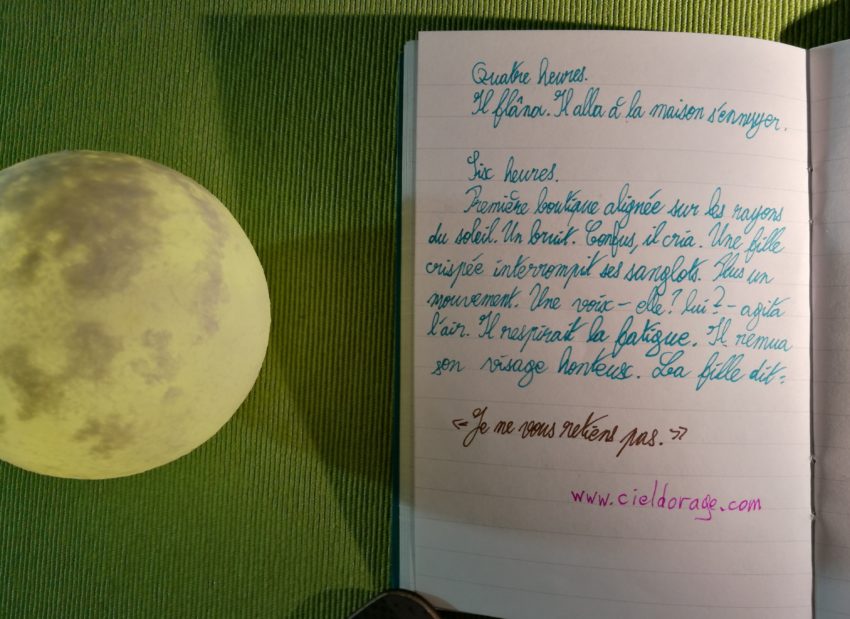 Quatre heures.
Il flâna. Il alla à la maison s'ennuyer.
Six heures.
Première boutique alignée sur les rayons
du soleil. Un bruit. Confus, il cria. Une fille
crispée interrompit ses sanglots. Plus un
mouvement. Une voix – elle? lui? – agita
l'air. Il respirait la fatigue. Il remua
son visage honteux. La fille dit:
«Je ne vous retiens pas.»
www.cieldorage.com